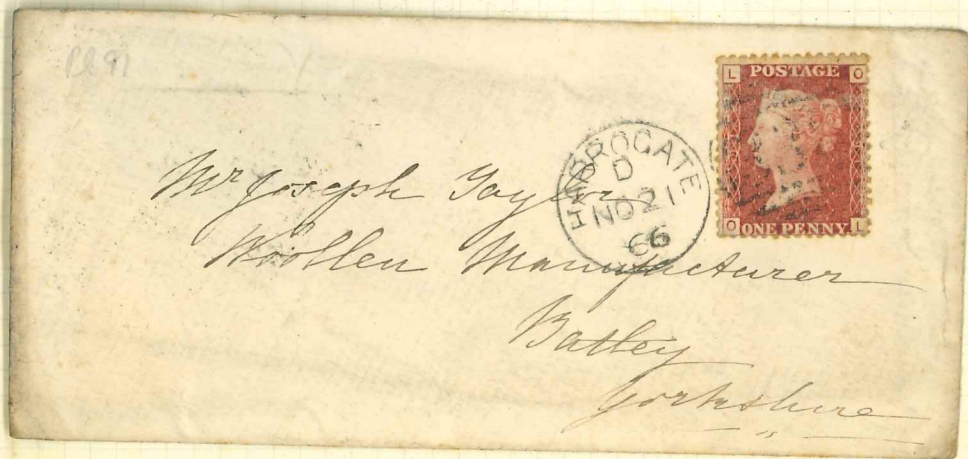 Pl 91
L POSTAGE O
O ONE PENNY L
HARROGATE
D
NO 21
66
Mr Joseph Taylor
Woollen Manufacturer
Batley
Yorkshire